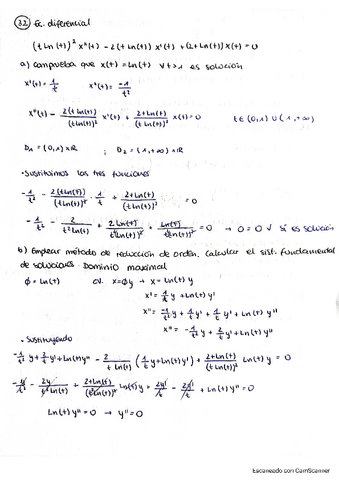 32 Ec. diferencial
(t Ln(t))² x''(t) - 2(t Ln(t)) x'(t) + (2+Ln(t)) x(t) = 0
a) comprueba que x(t) = Ln(t) ∀t>1 es solución
x'(t) = 1/t x''(t) = -1/t²
x''(t) - 2(t Ln(t))/(t Ln(t))² x'(t) + 2+Ln(t)/(t Ln(t))² x(t) = 0 t∈(0,1) ∪ (1,+∞)
D₁ = (0,1)×ℝ ; D₂ = (1,+∞)×ℝ
· Sustituimos las tres funciones
-1/t² - 2(t Ln(t))/(t Ln(t))² · 1/t + 2+Ln(t)/(t Ln(t))² = 0
-1/t² - 2/t² Ln(t) + 2Ln(t)/(t² Ln(t))² + Ln(t)/(t² Ln(t))² = 0 → 0=0 ✓ sí es solución
b) Emplear método de reducción de orden, calcular el sist. fundamental
de soluciones. Dominio maximal
ϕ = Ln(t) CV. x=ϕy → x = Ln(t) y
x' = 1/t y + Ln(t) y'
x'' = -1/t² y + 1/t y' + 1/t y' + Ln(t) y''
x'' = -1/t² y + 2/t y' + Ln(t) y''
· Sustituyendo
-1/t² y + 2/t y' + Ln(t) y'' - 2/t Ln(t) (1/t y + Ln(t) y') + 2+Ln(t)/(t Ln(t))² Ln(t) y = 0
-y/t² - 2y/t² Ln(t) + 2+Ln(t)/(t² Ln(t))² Ln(t) y + 2y'/t - 2y'/t + Ln(t) y'' = 0
Ln(t) y'' = 0 → y'' = 0
Escaneado con CamScanner